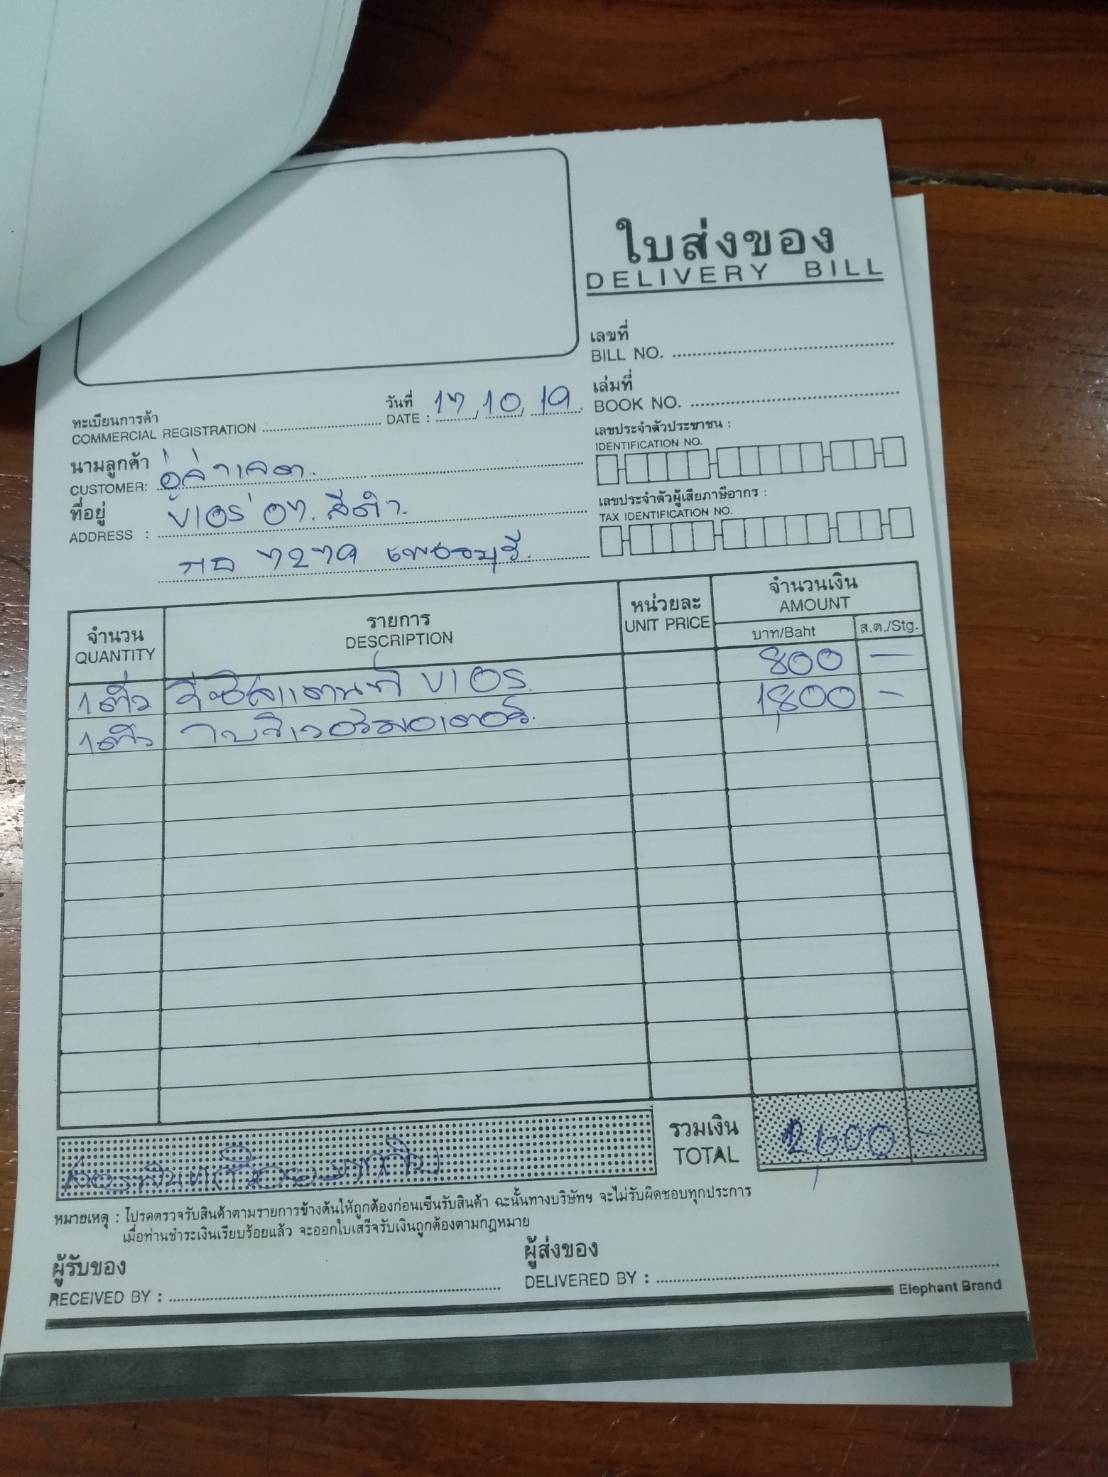 ใบส่งของ
DELIVERY BILL
เลขที่
BILL NO.
เล่มที่
BOOK NO.
วันที่
DATE : 17, 10, 19
ทะเบียนการค้า
COMMERCIAL REGISTRATION
เลขประจำตัวประชาชน :
IDENTIFICATION NO.
นามลูกค้า
CUSTOMER:
ที่อยู่
ADDRESS :
เลขประจำตัวผู้เสียภาษีอากร :
TAX IDENTIFICATION NO.
กธ 7279 เพชรบุรี.
จำนวน
QUANTITY
รายการ
DESCRIPTION
หน่วยละ
UNIT PRICE
จำนวนเงิน
AMOUNT
บาท/Baht
ส.ต./Stg.
1 ตัว VIOS 800 —
1 ตัว โบลเวอร์มอเตอร์. 1,800 —
รวมเงิน
TOTAL
2,600 —
หมายเหตุ : โปรดตรวจรับสินค้าตามรายการข้างต้นให้ถูกต้องก่อนเซ็นรับสินค้า ฉะนั้นทางบริษัทฯ จะไม่รับผิดชอบทุกประการ
เมื่อท่านชำระเงินเรียบร้อยแล้ว จะออกใบเสร็จรับเงินถูกต้องตามกฎหมาย
ผู้รับของ
RECEIVED BY :
ผู้ส่งของ
DELIVERED BY :
Elephant Brand